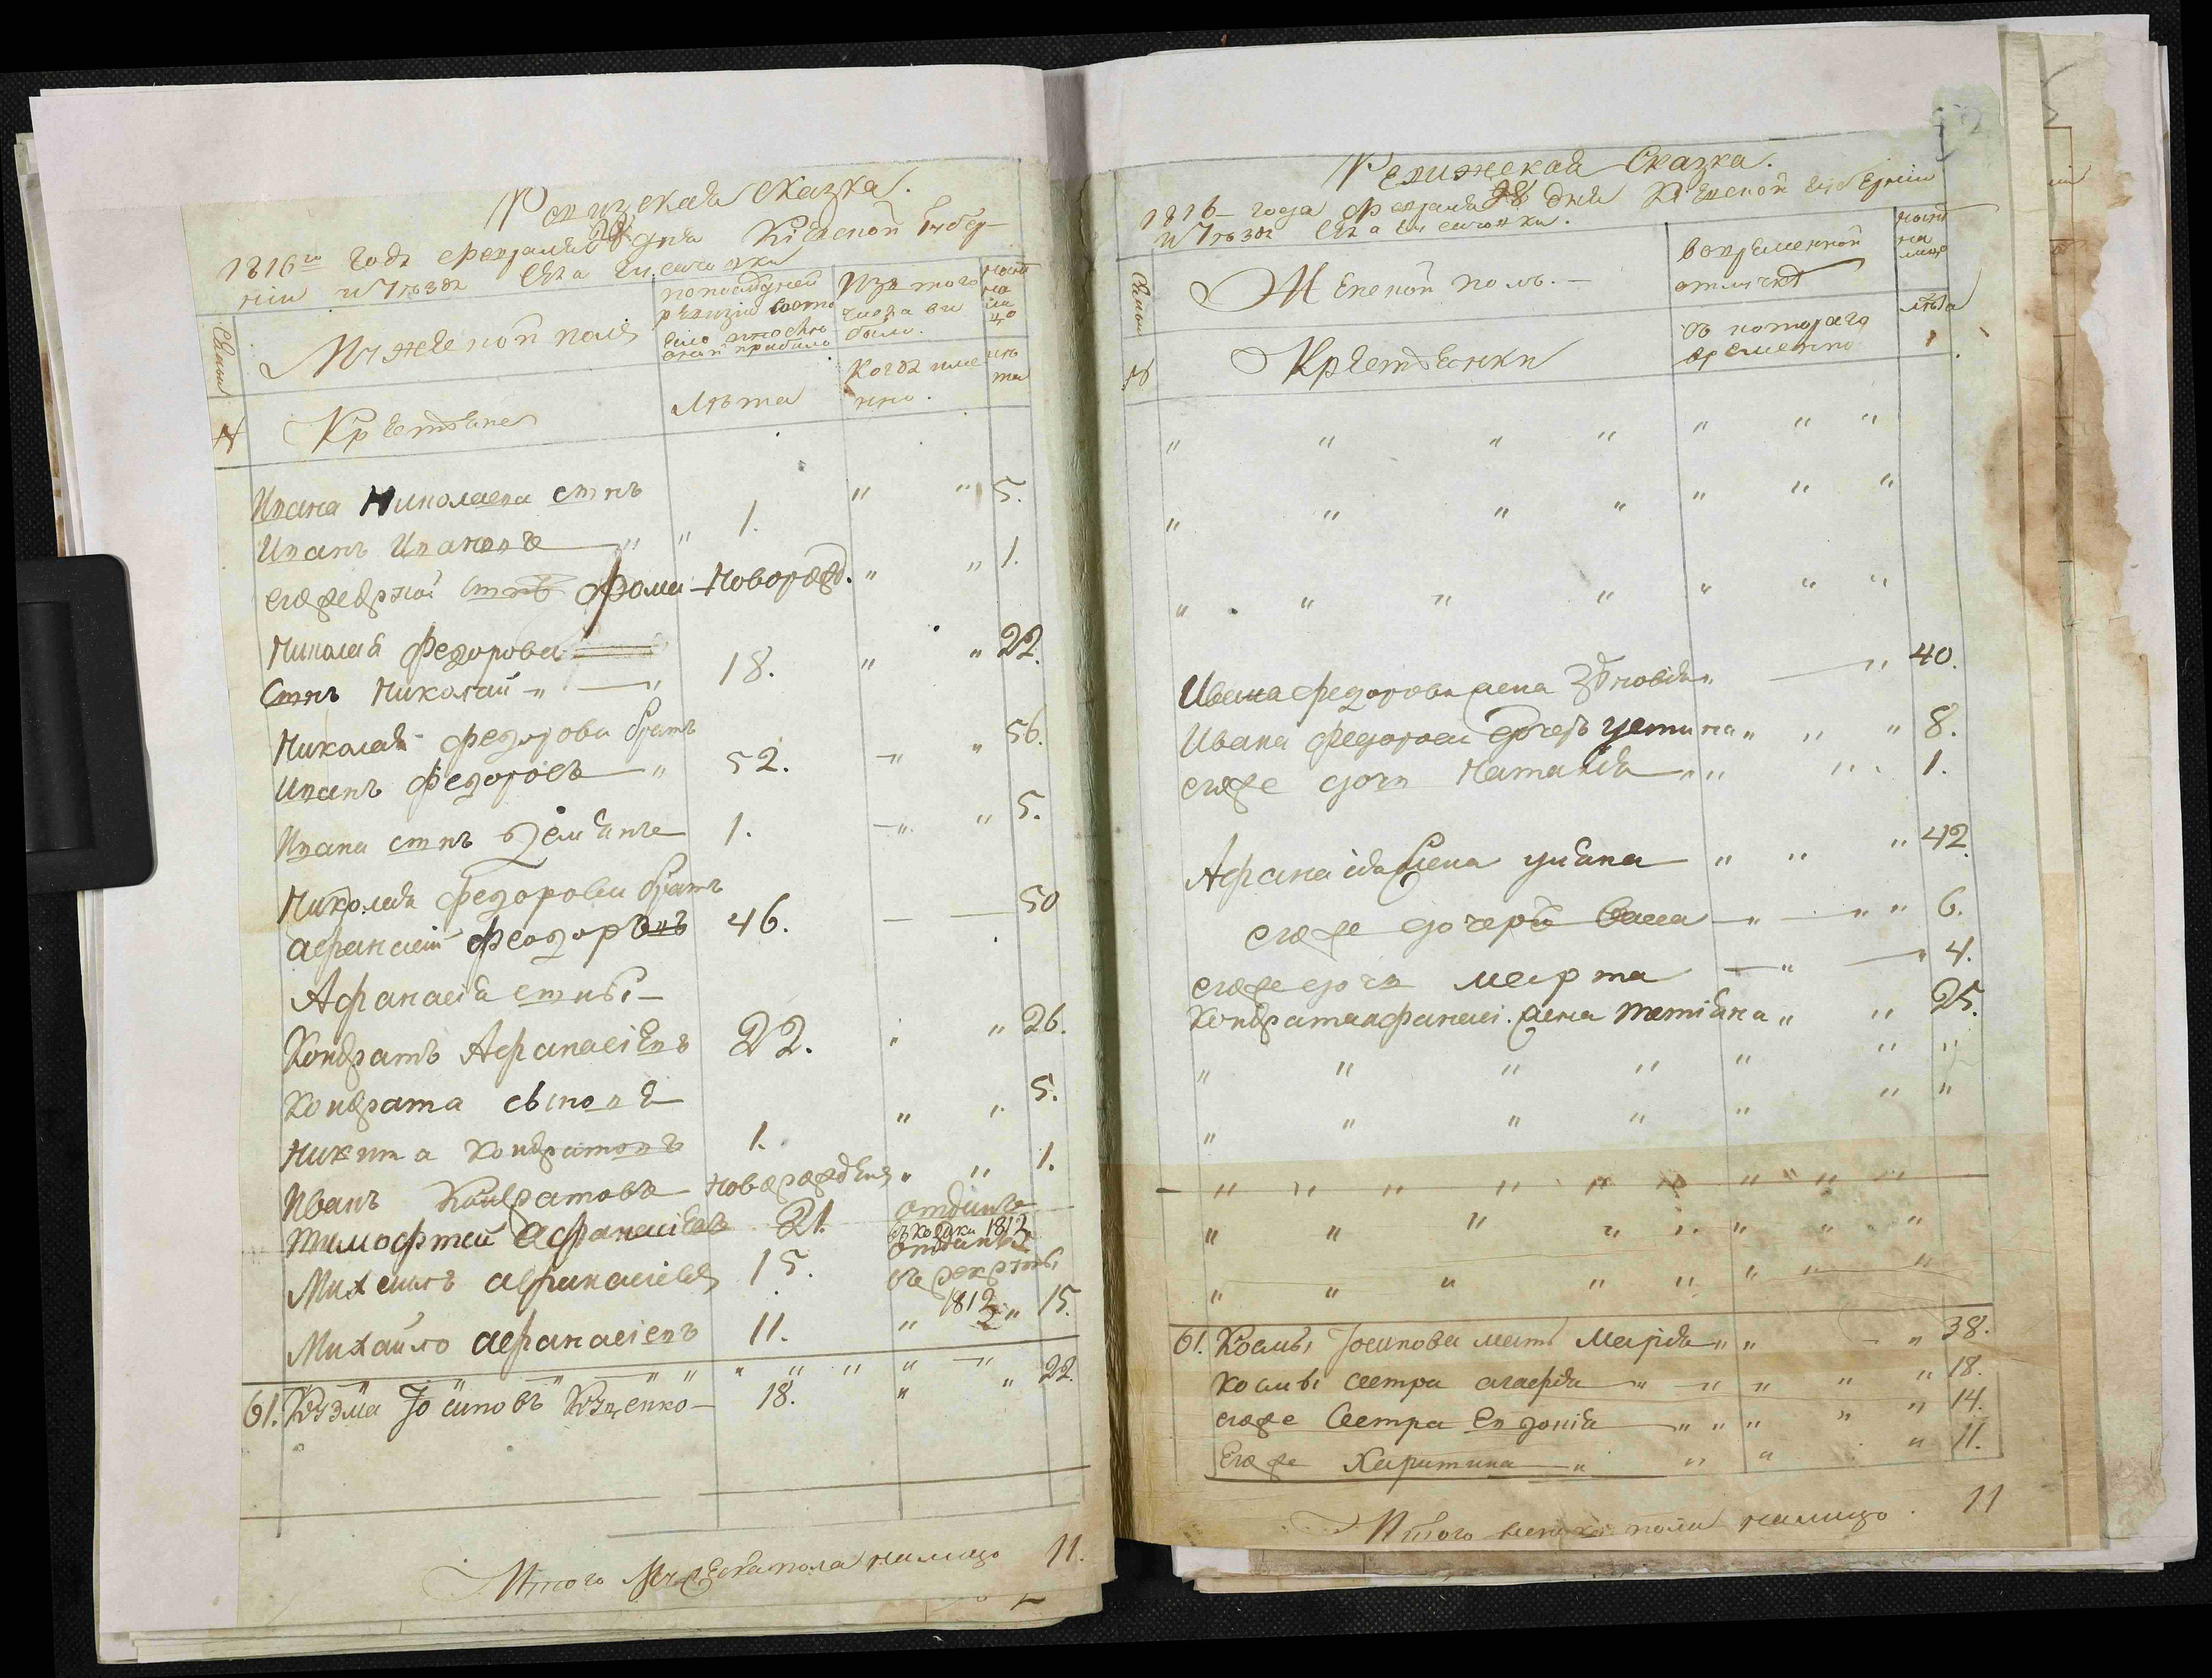 Ревизская сказка.
1816го года февраля 28 дня Кіевской губер-
ніи и уезда села
Семьи
Мужеской полъ
по последней ревизіи состо
яло и после оной прибыло
Изъ того числа вы было.
ныне на лицо
№
Крестьяне
Лѣта
Когда име нно.
лѣ та
Ивана Николаева сынъ
Иванъ Ивановъ " " 1. " " 5.
егоже другой сынъ Фома - Новорожд. " " 1.
Николая Федорова
Сынъ Николай " " 18. " " 22.
Николая Федорова братъ
Иванъ Федоровъ " 52. " " 56.
Ивана сынъ Демянъ 1. " " 5.
Николая Федорова братъ
Афанасій Феодоровъ 46. — — 50
Афанасія сыны -
Кондратъ Афанасіевъ 22. " " 26.
Кондрата сыновя " " 5.
Никита Кондратовъ 1.
Иванъ Кондратовъ новорожденъ " " 1.
Тимофтей Афанасіевъ 21. отданъ въ 1812
Михаилъ Афанасіевъ 15. отданъ въ рекруты 1812
Михайло Афанасіевъ 11. " " 15.
61. Кузма Іосиповъ Куценко - 18. " " 22.
Итого мужеска пола налицо 11.
Ревижская Сказка.
1816 года февраля 28 дня Кіевской губерніи
и уезда села
Семьи
Женской полъ. -
во временной отлучке
ныне на лице
№
Крестьянки
съ котораго временно
лѣта
" " " " " " "
" " " " " " "
" " " " " " "
Ивана Федорова жена Зѣновія " — " 40.
Ивана Федорова дочерь Устина " " " 8.
егоже дочь Наталія " " " " 1.
Афанасія жена Уліана " " " 42.
егоже дочери " " " 6.
егоже дочь Марта — " — " 4.
Кондрата Афанасі. жена Татіана " " 25.
" " " " " " "
" " " " " " "
" " " " " " " " "
" " " " " " " "
" " " " " " " "
61. Космы Іосипова мать Марія " " — " 38.
Космы сестра Агафія " " " " " 18.
егоже Сестра Евдокія " " " " " 14.
Егоже Харитина " " " " 11.
Итого женска пола налицо. 11